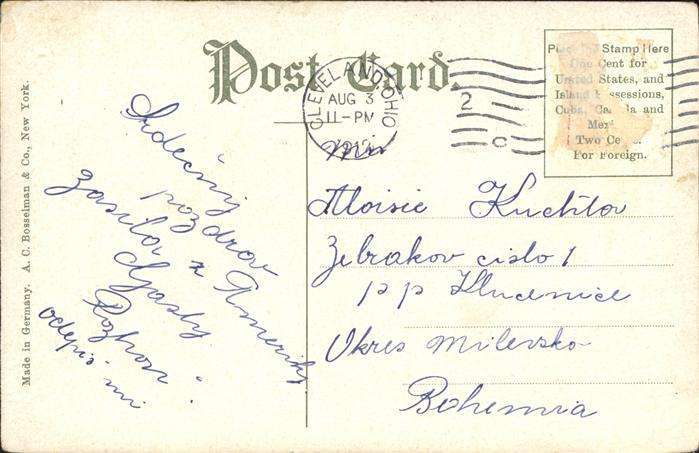 Post Card.
Made in Germany. A. C. Bosselman & Co., New York.
CLEVELAND, OHIO
AUG 3
11-PM
2
Place Stamp Here
One Cent for
United States, and
Island Possessions,
Cuba, Canada and
Mexico
Two Cents
For Foreign.
Srdečný
pozdrav
zasila z Ameriky
odepis mi
Aloisie Kuchtov
Zebrakov cislo 1
p p Klucenice
Okres Milevsko
Bohemia